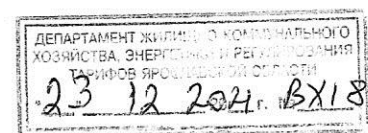 ДЕПАРТАМЕНТ ЖИЛИЩНО КОММУНАЛЬНОГО
ХОЗЯЙСТВА, ЭНЕРГЕТИКИ И РЕГУЛИРОВАНИЯ
ТАРИФОВ ЯРОСЛАВСКОЙ ОБЛАСТИ
23 12 2021 г. № ВХ18